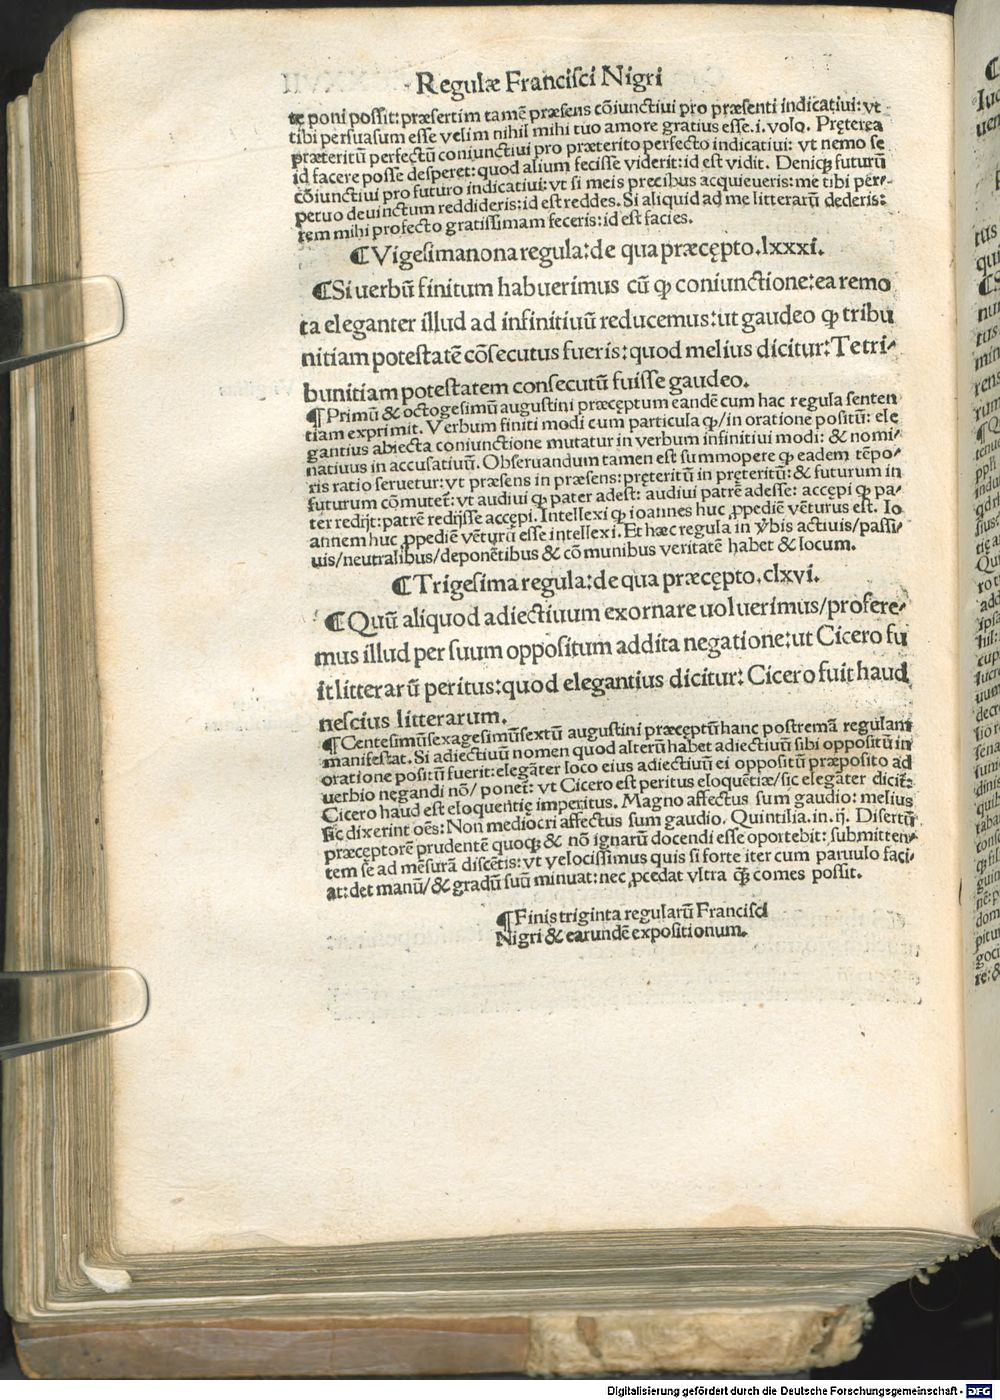 Regulæ Francisci Nigri
te poni possit: præsertim tamē præsens cōiunctiui pro præsenti indicatiui: vt
tibi persuasum esse velim nihil mihi tuo amore gratius esse .i. volo. Pręterea
præteritū perfectū coniunctiui pro præterito perfecto indicatiui: vt nemo se
id facere posse desperet: quod alium fecisse viderit: id est vidit. Deniqȝ futurū
cōiunctiui pro futuro indicatiui: vt si meis precibus acquieueris: me tibi per⸗
petuo deuinctum reddideris: id est reddes. Si aliquid ad me litterarū dederis:
rem mihi profecto gratissimam feceris: id est facies.
¶Vigesimanona regula: de qua præcępto. lxxxi.
¶Si uerbū finitum habuerimus cū ꝙ coniunctione: ea remo
ta eleganter illud ad infinitiuū reducemus: ut gaudeo ꝙ tribu
nitiam potestatē cōsecutus fueris: quod melius dicitur: Te tri⸗
bunitiam potestatem consecutū fuisse gaudeo.
¶Primū & octogesimū augustini præcęptum eandē cum hac regula senten
tiam exprimit. Verbum finiti modi cum particula ꝙ/in oratione positū: ele
gantius abiecta coniunctione mutatur in verbum infinitiui modi: & nomi⸗
natiuus in accusatiuū. Obseruandum tamen est summopere ꝙ eadem tēpo⸗
ris ratio seruetur: vt præsens in præsens: pręteritū in pręteritū: & futurum in
futurum cōmutet᷑: vt audiui ꝙ pater adest: audiui patrē adesse: accępi ꝙ pa⸗
ter redijt: patrē redijsse accępi. Intellexi ꝙ ioannes huc ꝓpediē vēturus est. Io
annem huc ꝓpediē vēturū esse intellexi. Et hæc regula in v̄bis actiuis/passi⸗
uis/neutralibus/deponētibus & cōmunibus veritatē habet & locum.
¶Trigesima regula: de qua præcępto. clxvi.
¶Quū aliquod adiectiuum exornare uoluerimus/profere⸗
mus illud per suum oppositum addita negatione: ut Cicero fu
it litterarū peritus: quod elegantius dicitur: Cicero fuit haud
nescius litterarum.
¶Centesimūsexagesimūsextū augustini præcęptū hanc postremā regulam
manifestat. Si adiectiuū nomen quod alterū habet adiectiuū sibi oppositū in
oratione positū fuerit: elegāter loco eius adiectiuū ei oppositū præposito ad
uerbio nęgandi nō/ponet᷑: vt Cicero est peritus eloquētiæ/sic elegāter dicit᷑:
Cicero haud est eloquentię imperitus. Magno affectus sum gaudio: melius
sic dixerint oēs: Non mediocri affectus sum gaudio. Quintilia. in .ij. Disertū
præcęptorē prudentē quoqȝ & nō ignarū docendi esse oportebit: submitten⸗
tem se ad mēsurā discētis: vt velocissimus quis si forte iter cum paruulo faci⸗
at: det manū/& gradū suū minuat: nec ꝓcedat vltra q̄ȝ comes possit.
¶Finis triginta regularū Francisci
Nigri & earundē expositionum.
Digitalisierung gefördert durch die Deutsche Forschungsgemeinschaft - DFG